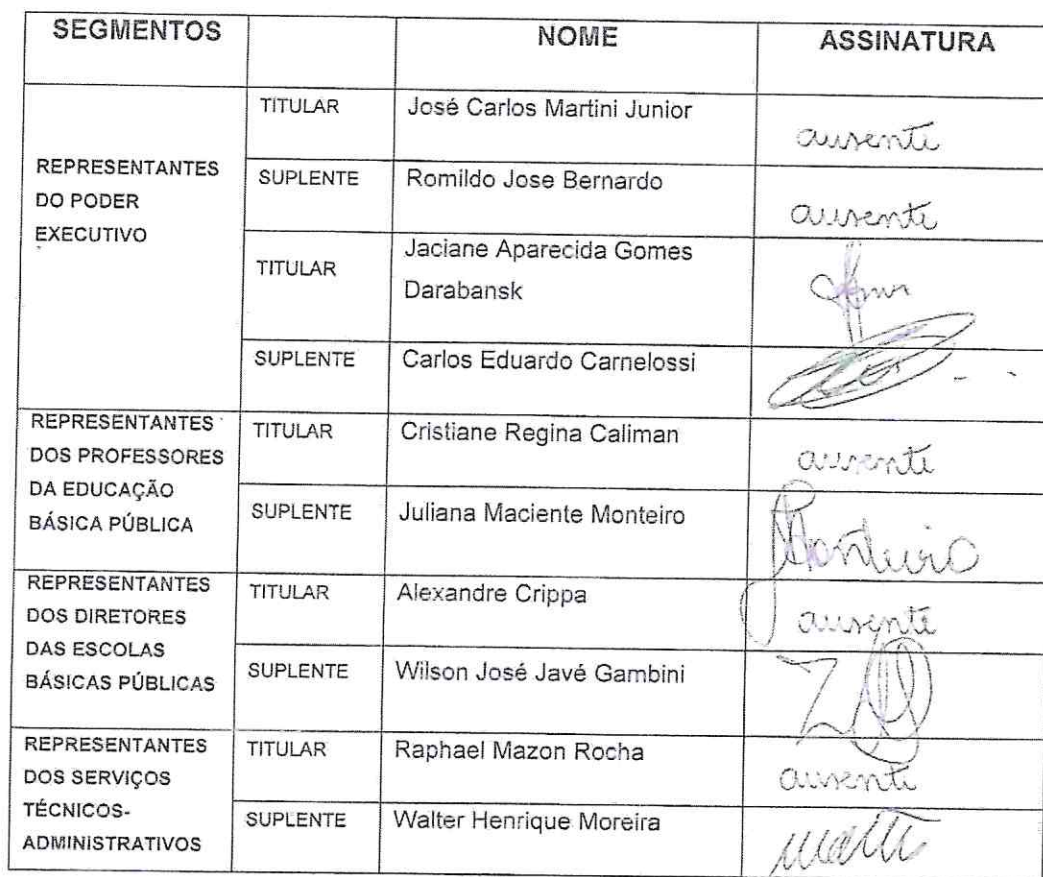 SEGMENTOS NOME ASSINATURA
TITULAR José Carlos Martini Junior ausente
REPRESENTANTES
DO PODER
EXECUTIVO
SUPLENTE Romildo Jose Bernardo ausente
TITULAR Jaciane Aparecida Gomes
Darabansk
SUPLENTE Carlos Eduardo Carnelossi
REPRESENTANTES
DOS PROFESSORES
DA EDUCAÇÃO
BÁSICA PÚBLICA
TITULAR Cristiane Regina Caliman ausente
SUPLENTE Juliana Maciente Monteiro JMonteiro
REPRESENTANTES
DOS DIRETORES
DAS ESCOLAS
BÁSICAS PÚBLICAS
TITULAR Alexandre Crippa ausente
SUPLENTE Wilson José Javé Gambini
REPRESENTANTES
DOS SERVIÇOS
TÉCNICOS-
ADMINISTRATIVOS
TITULAR Raphael Mazon Rocha ausente
SUPLENTE Walter Henrique Moreira